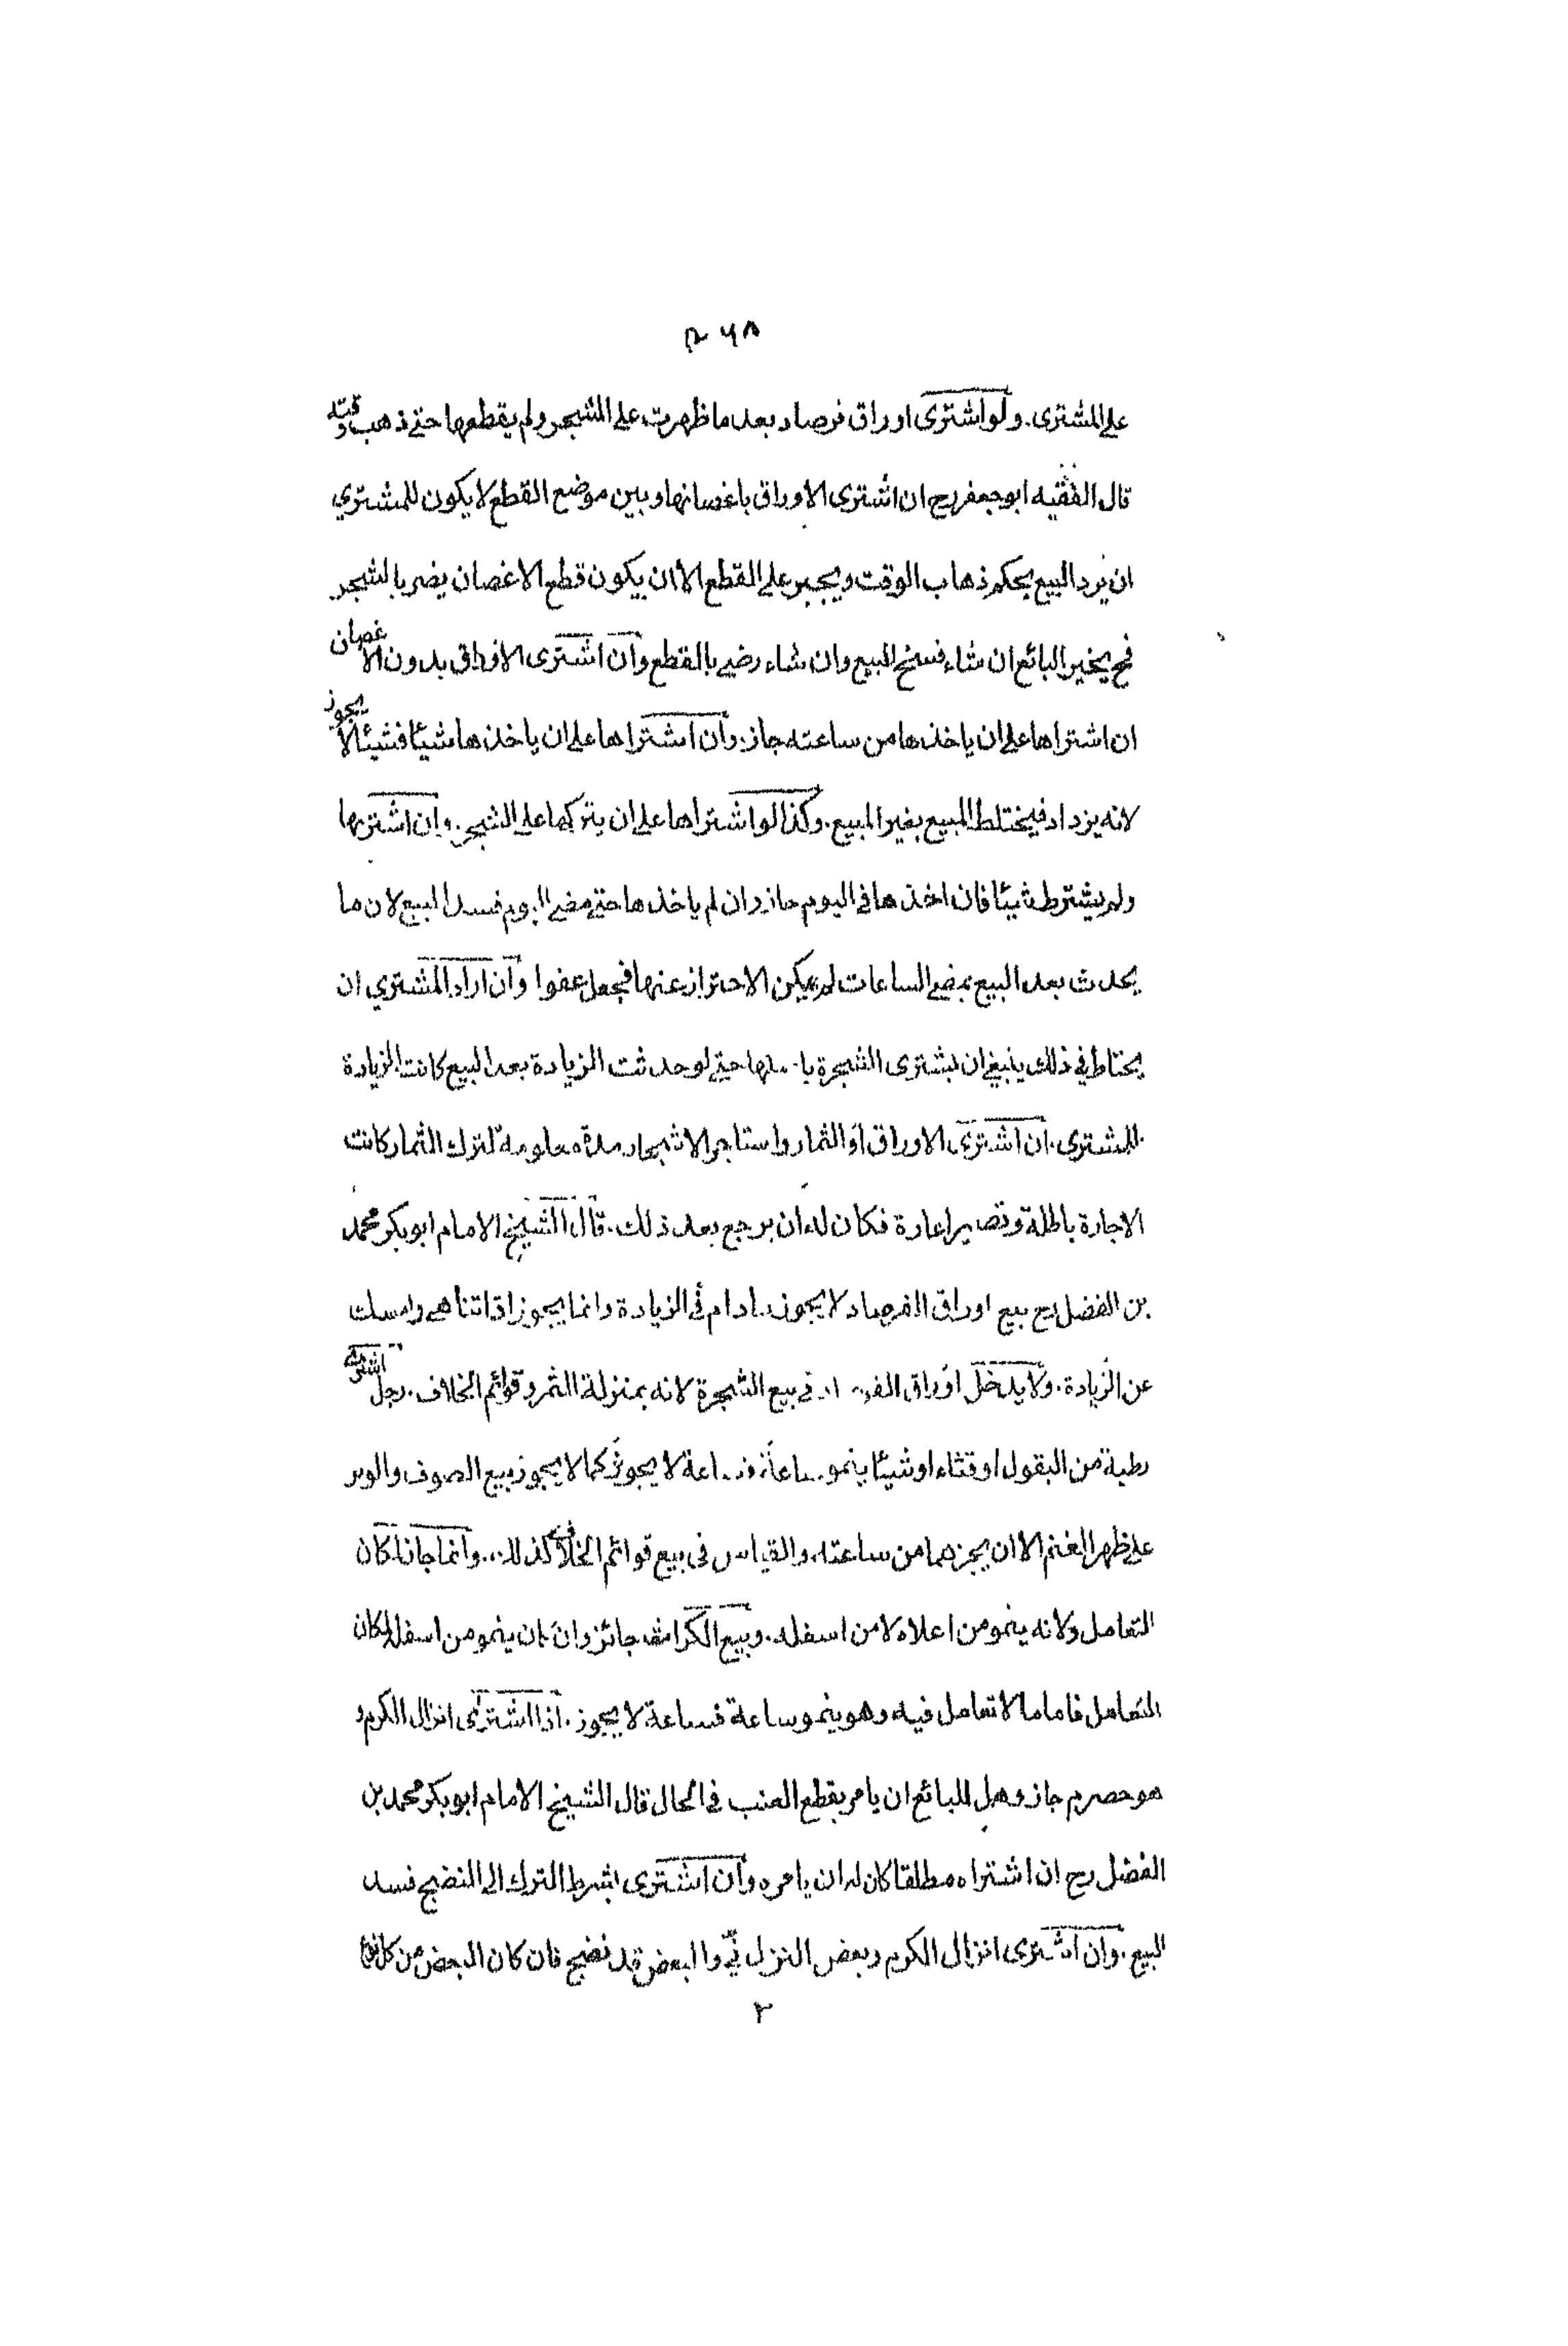 ٢٦٨
على المشترى. ولو اشترى اوراق فرصاد بعد ما ظهرت على الشجر ولم يقطعها حتى ذهب وقته
قال الفقيه ابوجعفر رح ان اشترى الاوراق باغصانها وبين موضع القطع لا يكون للمشتري
ان يرد البيع بحكم ذهاب الوقت ويجبر على القطع الا ان يكون قطع الاغصان يضر بالشجر
فح يخير البائع ان شاء فسخ البيع وان شاء رضى بالقطع وان اشترى الاوراق بدون الاغصان
ان اشتراها على ان ياخذها من ساعته جاز. وان اشتراها على ان ياخذها شيئا فشيئا لا يجوز
لانه يزداد فيختلط المبيع بغير المبيع. وكذا لو اشتراها على ان يتركها على الشجر. وان اشتريها
ولم يشترط شيئا فان اخذها فى اليوم جاز وان لم ياخذها حتى مضى اليوم فسد البيع لان ما
يحدث بعد البيع بمضى الساعات لم يمكن الاحتراز عنها فيجعل عفوا وان اراد المشتري ان
يحتاط في ذلك ينبغى ان يشترى الشجرة باصلها حتى لو حدثت الزيادة بعد البيع كانت الزيادة
للمشترى. ان اشترى الاوراق او الثمار واستاجر الاشجار مدة معلومة لترك الثمار كانت
الاجارة باطلة وتصير اعارة فكان له ان يرجع بعد ذلك. قال الشيخ الامام ابوبكر محمد
بن الفضل رح بيع اوراق الفرصاد لا يجوز مادام فى الزيادة وانما يجوز اذا تناهى وامسكت
عن الزيادة. ولا يدخل اوراق الفرصاد فى بيع الشجرة لانه بمنزلة الثمر وقوائم الخلاف. رجل اشترى
رطبة من البقول او قثاء او شيئا ينمو ساعة فساعة لا يجوز كما لا يجوز بيع الصوف والوبر
على ظهر الغنم الا ان يجزهما من ساعته. والقياس فى بيع قوائم الخلاف كذلك. وانما جاز لمكان
التعامل ولانه ينمو من اعلاه لا من اسفله. وبيع الكراث جائز وان كان ينمو من اسفله لمكان
التعامل فاما ما لا تعامل فيه وهو ينمو ساعة فساعة لا يجوز. اذا اشترى انزال الكرم و
هو حصرم جاز وهل للبائع ان يامر بقطع العنب فى الحال قال الشيخ الامام ابوبكر محمد بن
الفضل رح ان اشتراه مطلقا كان له ان يامره وان اشترى بشرط الترك الى النضج فسد
البيع. وان اشترى انزال الكرم وبعض النزل نئ والبعض قد نضج فان كان البعض من كل نوع
٢